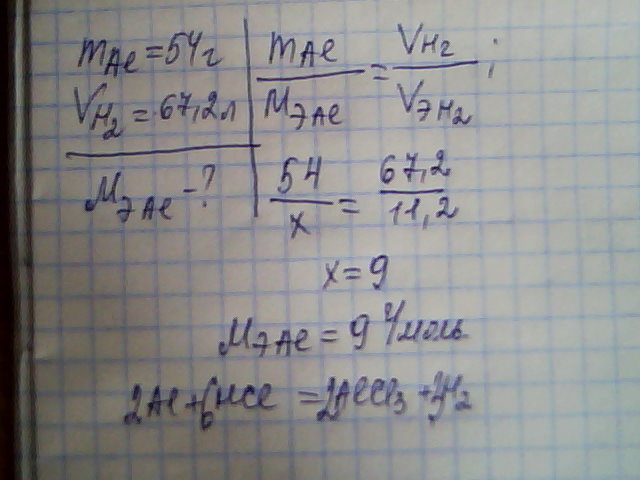 mAl = 54г
VH2 = 67,2л
MЭAl - ?
mAl / MЭAl = VH2 / VЭH2 ;
54 / x = 67,2 / 11,2
x = 9
MЭAl = 9 г/моль
2Al + 6HCl = 2AlCl3 + 3H2